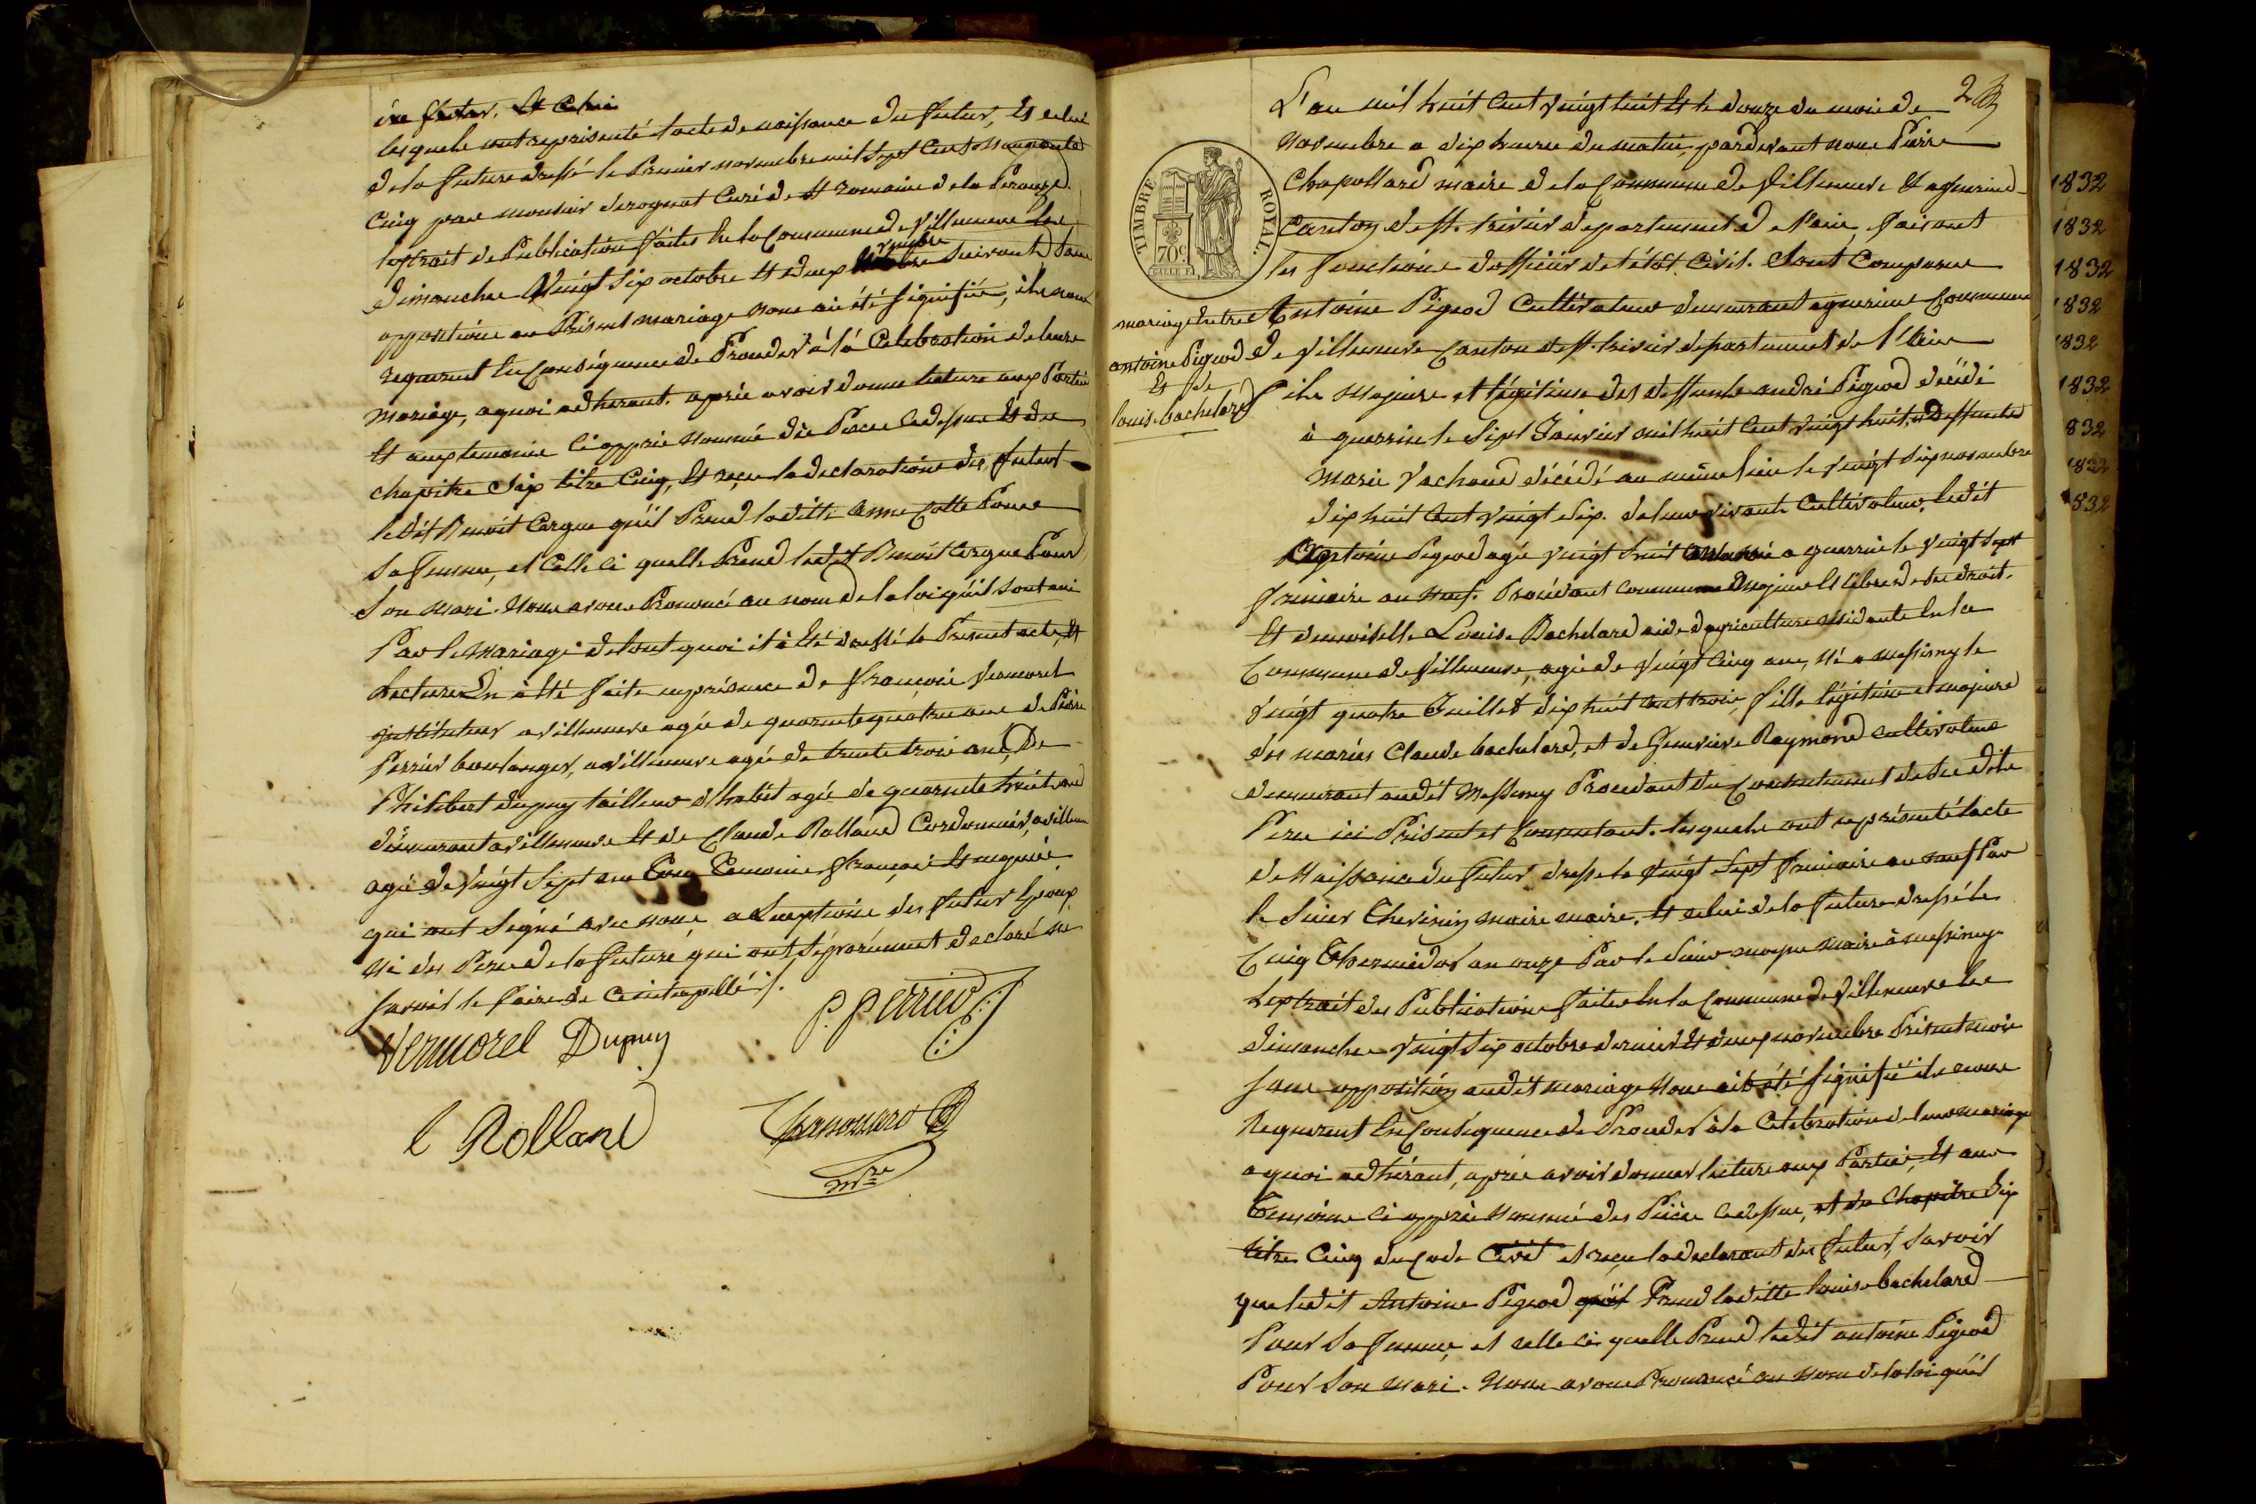 lesquels ont représenté lacte de naissance du futur, Et celui
de la future dressé le Premier novembre mil Sept Cent
Cinq par monsieur curé de St romain de la
lextrait de Publication faites En la Commune de Villeneuve les
dimanches Vingt Six octobre Et deux suivant Sans
opposition au Présent mariage nous ai été signifiée, ils nous
requerent En Conséquence de Proceder à la Célébration de leurs
mariage, aquoi adherant. après avoir donné lecture aux Parties
Et aux temoins ci après nommé des Pièces ci dessus Et du
chapitre Six titre Cinq, Et reçu la déclarations des futurs
ledit Benoit Cargue quil Prend laditte Anne Cotte Pour
Sa femme, et Celle ci quelle Prend ledit Benoit Cargue Pour
Son mari. Nous avons Prononcé au nom de la loi quils sont unis
Par le mariage de tout quoi il à Eté dressé le Present acte, Et
Lecture En à Eté faite en présence de françois Vermorel
instituteur a villeneuve agée de quarante quatre ans de Pierre
Perrier boulanger, a Villeneuve agée de trente trois ans, De
Philibert dupuy tailleur d'habit agée de quarante huit ans
demeurant a Villeneuve Et de Claude Rolland Cordonnier, a villeneuve
agée de Vingt Sept ans Tous Temoins français Et
qui ont Signé avec nous a Lexception des futur Epoux
Ni des Peres de la future qui ont Séparément declaré ne
Savoir le faire de
Vermorel Dupuy P. Perrier
C Rolland
mre
TIMBRE ROYAL.
70c
mariage Entre
antoine Pigeod
Et de
louise bachelard
L'an mil huit Cent Vingt huit Et le douze du mois de
Novembre a dix heures du matin, pardevant nous Pierre
Chapollard maire de la Commune de Villeneuve Et agnerins
Canton de St. trivier département de l'ain, faisant
les fonctions d'officier de létat Civil. Sont Comparus
Antoine Pigeod Cultivateur demeurant agnerins Commune
de Villeneuve Canton de St. trivier departement de l'Ain
fils Majeure et légitime des deffunts andré Pigeod décédé
à le Sept Janvier mil huit Cent Vingt huit, Deffunte
Marie Vachond décédé au même lieu le Vingt Six novembre
dix huit Cent Vingt Six. de leur vivants Cultivateur, ledit
Antoine Pigeod agée Vingt huit le Vingt Sept
frimaire an neuf. Procédant comme Majeur Et libre de Ses droit.
Et demoiselle Louise Bachelard aide d'agriculture résidante En la
Commune de Villeneuve, agée de Vingt Cinq ans, Né a Messimy le
Vingt quatre Juillet dix huit Cent trois fille légitime et majeure
des mariés Claude bachelard, et de Genevieve Raymond Cultivateurs
demeurant audit Messimy Procedant du Consentement de Ses dits
Peres ici Présent et Consentant. lesquels ont représenté lacte
de Naissance du futur dressé le Vingt Sept frimaire an neuf Par
le Sieur Thevenin maire maire. Et celui de la future dressé le
Cinq Thermidor an onze Par le Sieur maire à messimy
Lextrait des Publications faites En la Commune de Villeneuve les
dimanches Vingt Six octobre dernier Et deux novembre Présent mois
Sans opposition audit mariage Nous ait été signifié ils nous
Requerent En Conséquence de Proceder à la Célébration de leur mariage
aquoi adhérant, après avoir donner lecture aux Parties, Et aux
Temoins ci après nommé des Pièces ci dessus, et du Chapitre Six
titre Cinq du Code Civil et reçu la déclarant des futur, Savoir
que ledit Antoine Pigeod quil Prend laditte louise bachelard
Pour Sa femme, et celle ci quelle Prend ledit antoine Pigeod
Pour Son mari. Nous avons Prononcé au Nom de la loi quils
1832
1832
1832
1832
832
1832
832
1832
832